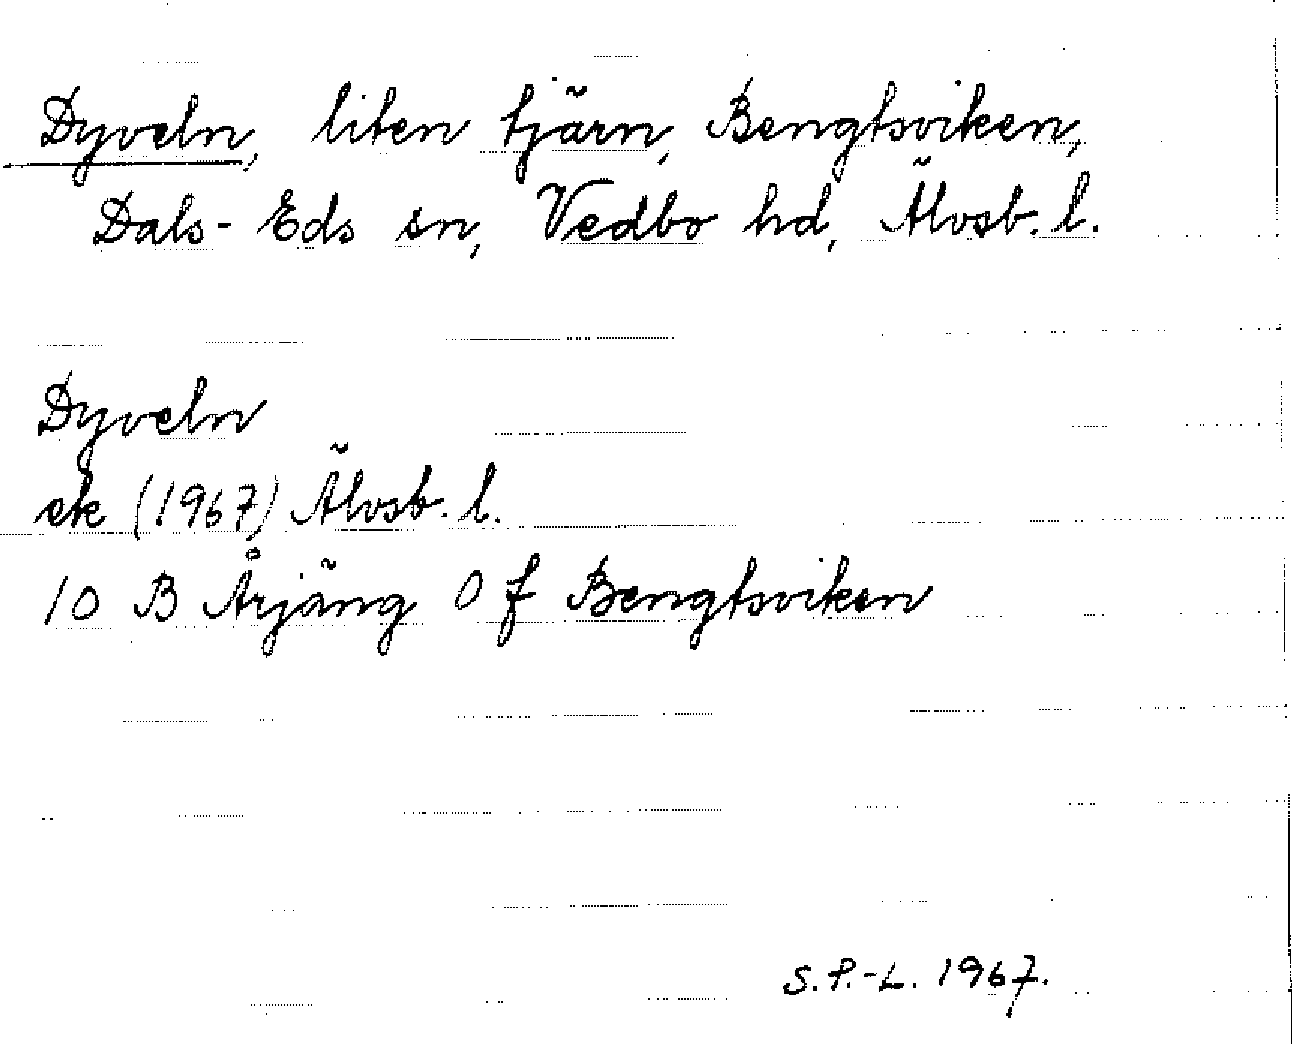 Dyveln, liten tjärn, Bengtsviken,
Dals-Eds sn, Vedbo hd, Älvsb. l.
Dyveln
ek (1967) Älvsb. l.
10 B Årjäng 0 f Bengtsviken
S.P.-L. 1967.